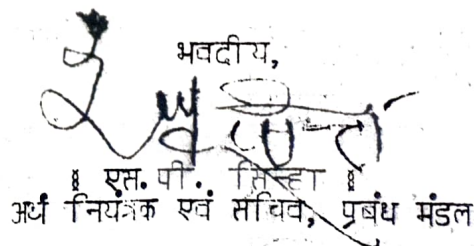 भवदीय,
॥ एस. पी. सिन्हा ॥
अर्थ नियंत्रक एवं सचिव, प्रबंध मंडल